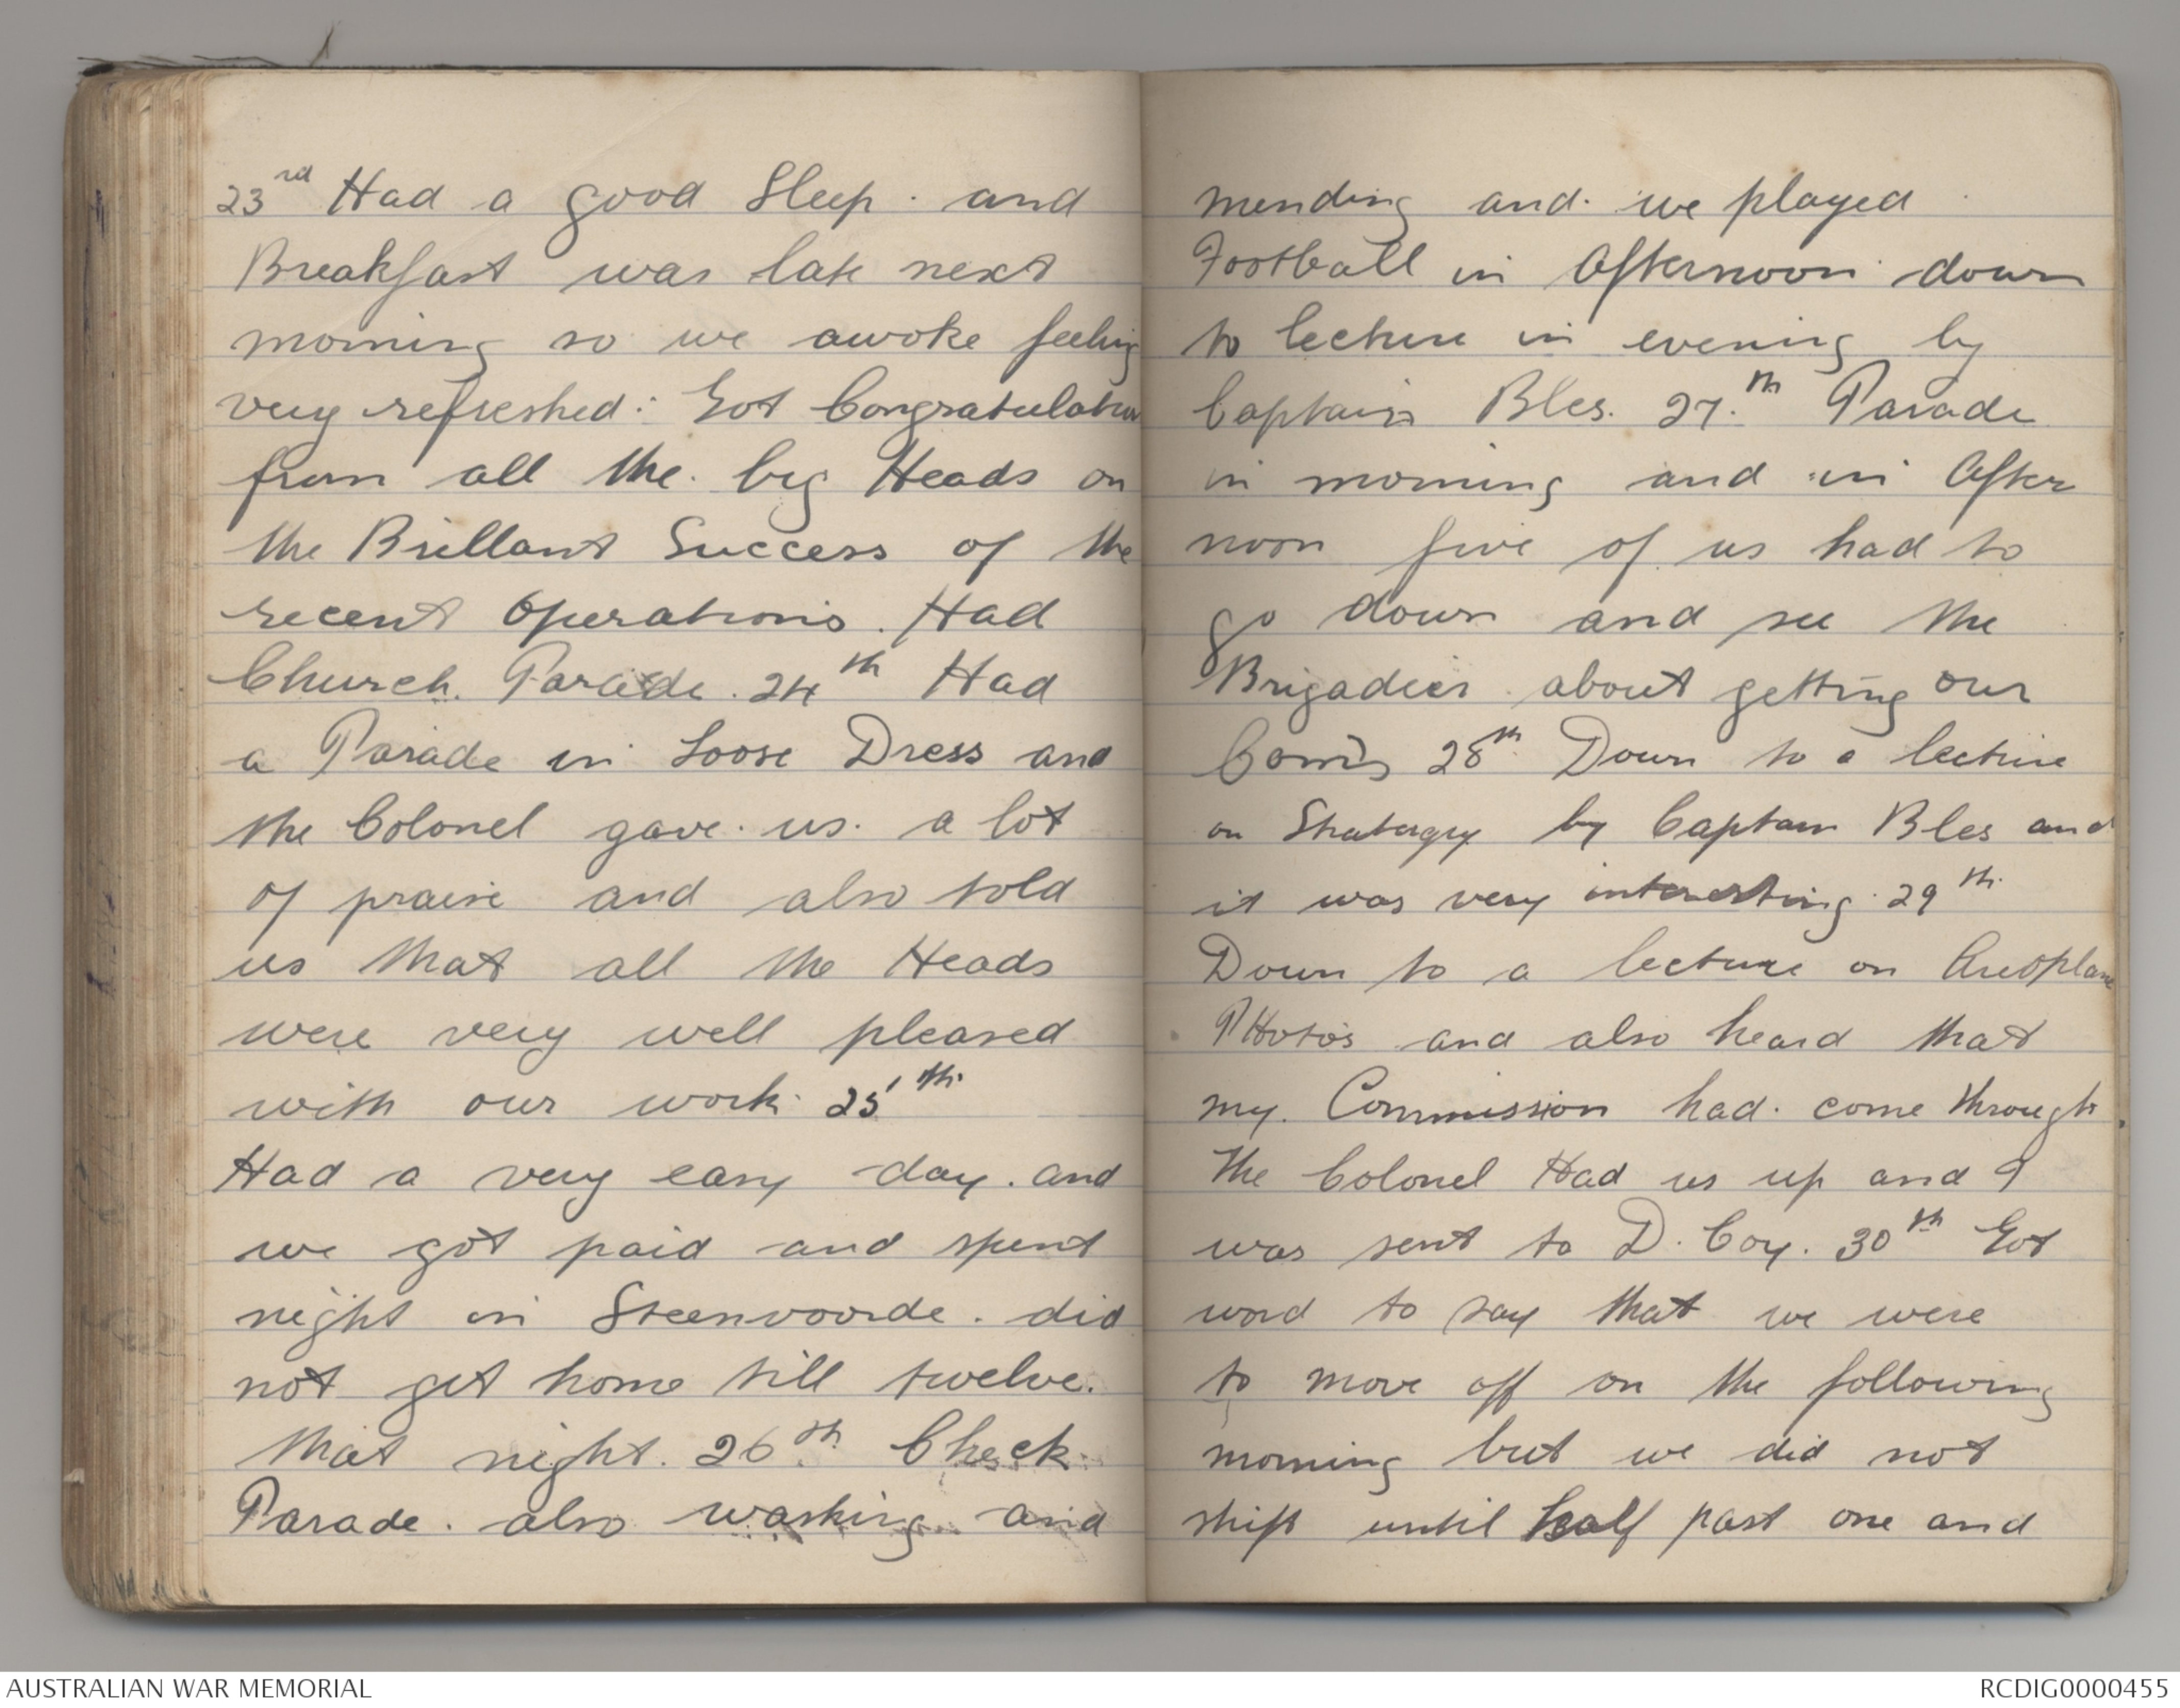 23rd Had a good Sleep. and
Breakfast was late next
morning so we awoke feeling
very refreshed: Got Congratulation
from all the big Heads on
the Brillant Success of the
recent Operations. Had
Church. Parade. 24th Had
a Parade in Loose Dress and
the Colonel gave us. a lot
of praise and also told
us that all the Heads
were very well pleased
with our work 25th
Had a very easy day. and
we got paid and spent
night in Steenvoorde. did
not get home till twelve.
that night. 26th Check
Parade. also washing and
mending and we played
Football in Afternoon down
to lecture in evening by
Captain Bles. 27.th Parade
in morning and in After
noon five of us had to
go down and see the
Brigadier about getting our
Coms 28th Down to a lecture
on Statergy by Captain Bles and
it was very interesting. 29th
Down to a lecture on Areoplane
PHotos and also heard that
my. Commission had. come through
The Colonel Had us up and I
was sent to D. Coy. 30th Got
word to say that we were
to move off on the following
morning but we did not
shift until half past one and
AUSTRALIAN WAR MEMORIAL
RCDIG0000455